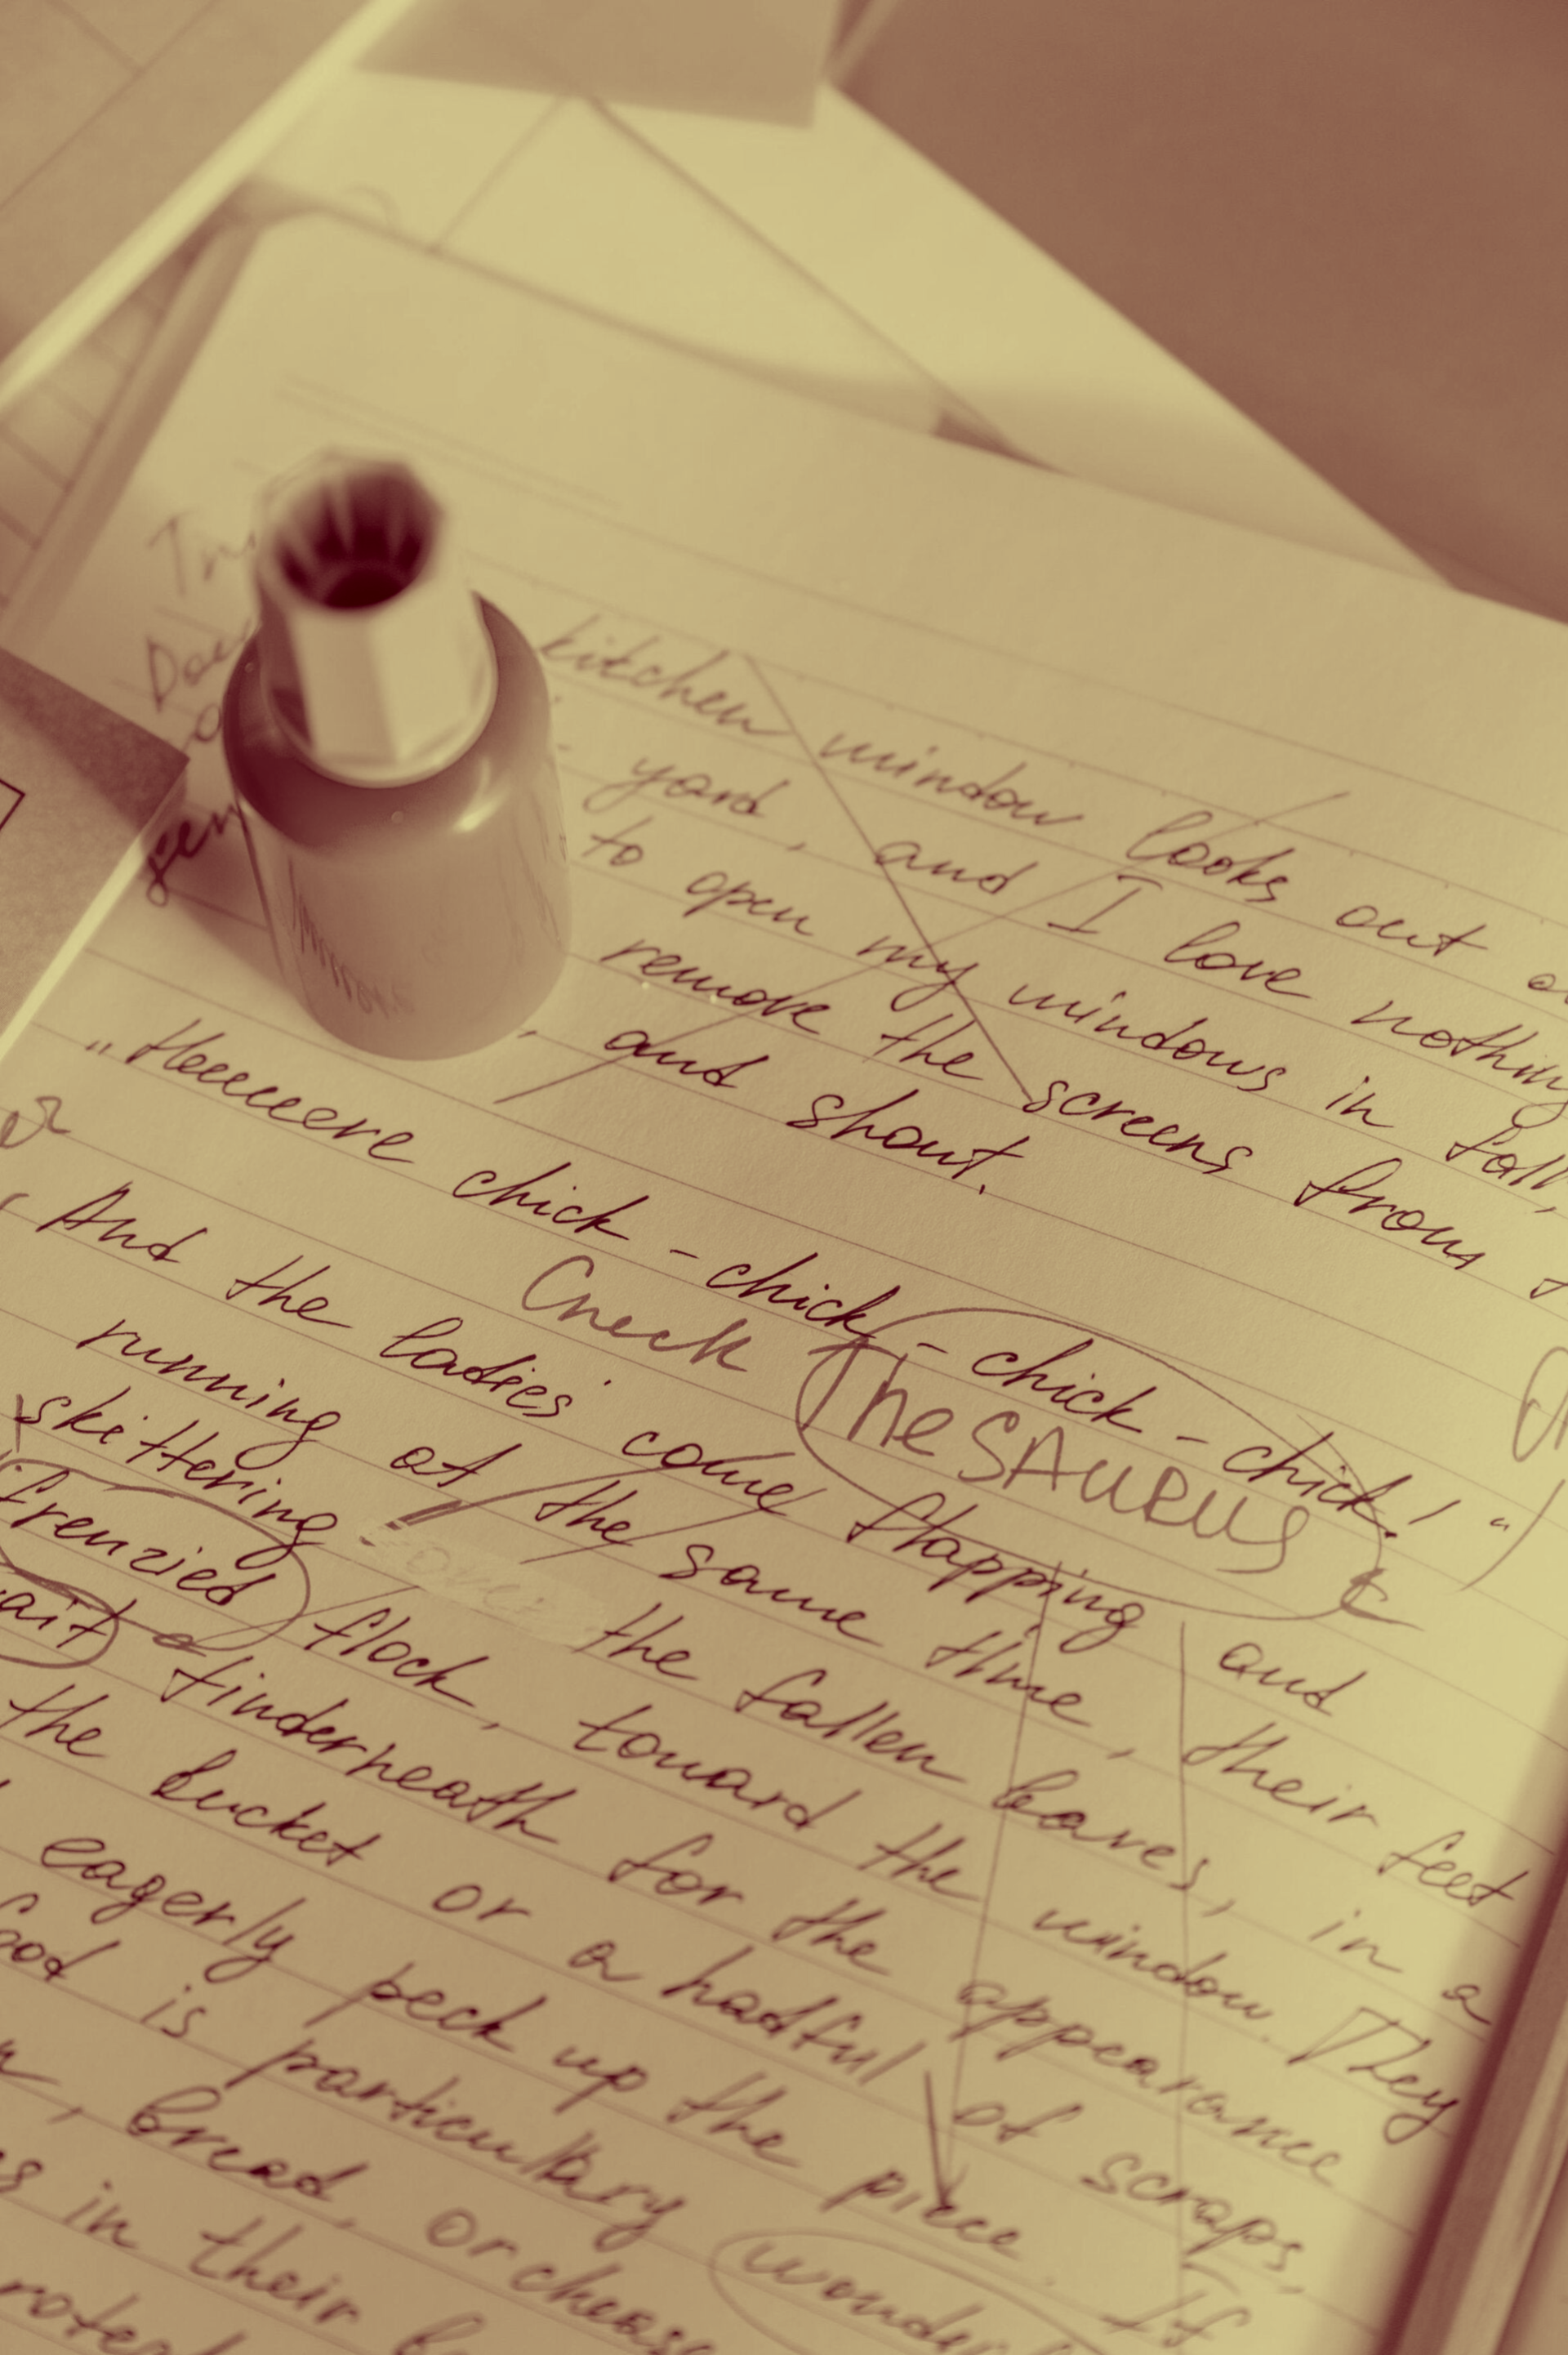 kitchen window looks out
yard, and I love nothing
to open my windows in fall,
remove the screens from
, and shout.
„Heeeeere chick - chick - chick - chick! “
Check TheSAURUS
And the ladies come flapping and
running at the same time, their feet
skittering over the fallen leaves, in a
frenzied flock, toward the window. They
wait tinderneath for the appearance
the bucket or a hadful of scraps,
eagerly peck up the piece. If
food is particulary wonder
, bread, or cheese
in their